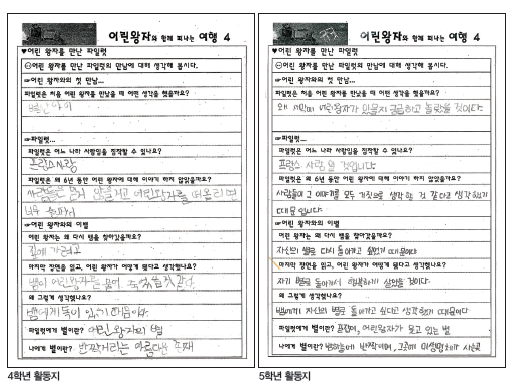 어린왕자와 함께 떠나는 여행 4
♥어린 왕자를 만난 파일럿
☺어린 왕자를 만난 파일럿의 만남에 대해 생각해 봅시다.
☞어린 왕자와의 첫 만남...
파일럿은 처음 어린 왕자를 만났을 때 어떤 생각을 했을까요?
별난 아이
☞파일럿...
파일럿은 어느 나라 사람임을 짐작할 수 있나요?
프랑스 사람
파일럿은 왜 6년 동안 어린 왕자에 대해 이야기 하지 않았을까요?
사람들은 믿지 않을거고 어린왕자를 떠올리면
너무 슬퍼서
☞어린 왕자와의 이별
어린 왕자는 왜 다시 뱀을 찾아갔을까요?
집에 가려고
마지막 장면을 읽고, 어린 왕자가 어떻게 됐다고 생각했나요?
뱀이 어린왕자를 물어 죽었을것 같다
왜 그렇게 생각했나요?
뱀에게 독이 있기 때문이다
파일럿에게 별이란? 어린 왕자의 별
나에게 별이란? 반짝거리는 아름다운 존재
4학년 활동지
어린왕자와 함께 떠나는 여행 4
♥어린 왕자를 만난 파일럿
☺어린 왕자를 만난 파일럿의 만남에 대해 생각해 봅시다.
☞어린 왕자와의 첫 만남...
파일럿은 처음 어린 왕자를 만났을 때 어떤 생각을 했을까요?
왜 사막에 어린왕자가 있을지 궁금하고 놀랐을 것이다.
☞파일럿...
파일럿은 어느 나라 사람임을 짐작할 수 있나요?
프랑스 사람 일 것입니다
파일럿은 왜 6년 동안 어린 왕자에 대해 이야기 하지 않았을까요?
사람들이 그 이야기를 모두 거짓으로 생각할 것 같다고 생각했기
때문입니다.
☞어린 왕자와의 이별
어린 왕자는 왜 다시 뱀을 찾아갔을까요?
자신의 별로 다시 돌아가고 싶었기 때문이다
마지막 장면을 읽고, 어린 왕자가 어떻게 됐다고 생각했나요?
자기 별로 돌아가서 행복하게 살았을 것이다.
왜 그렇게 생각했나요?
뱀에게 자신의 별로 돌아가고 싶다고 생각했기 때문이다
파일럿에게 별이란? 어린왕자가 살고 있는 별
나에게 별이란? 밤하늘에 반짝이며, 그곳에 외계생명체가 사는곳
5학년 활동지